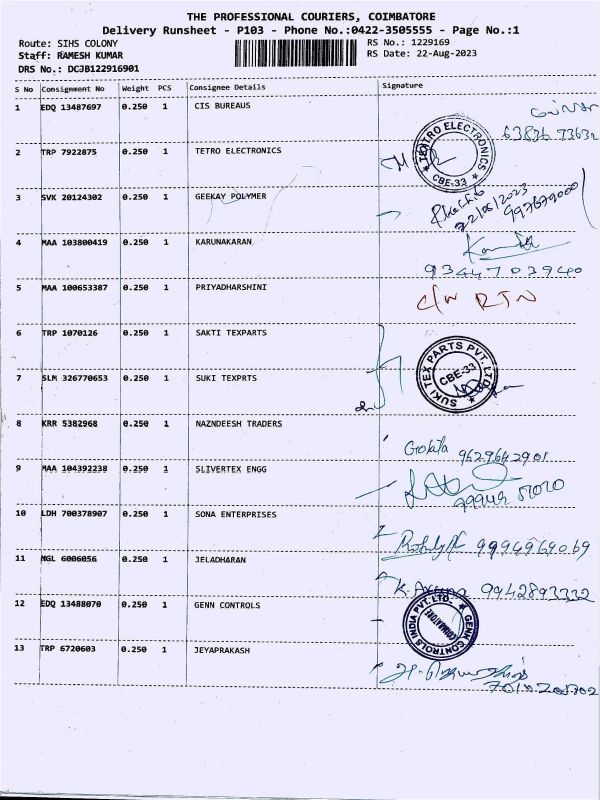 THE PROFESSIONAL COURIERS, COIMBATORE
Delivery Runsheet - P103 - Phone No.:0422-3505555 - Page No.:1
Route: SIHS COLONY
RS No.: 1229169
Staff: RAMESH KUMAR
RS Date: 22-Aug-2023
DRS No.: DCJB122916901
S No Consignment No Weight PCS Consignee Details Signature
1 EDQ 13487697 0.250 1 CIS BUREAUS
2 TRP 7922875 0.250 1 TETRO ELECTRONICS
TETRO ELECTRONICS
CBE-33
3 SVK 20124302 0.250 1 GEEKAY POLYMER
22/08/2023
4 MAA 103800419 0.250 1 KARUNAKARAN
9344703940
5 MAA 100653387 0.250 1 PRIYADHARSHINI
C/W RTN
6 TRP 1070126 0.250 1 SAKTI TEXPARTS
7 SLM 326770653 0.250 1 SUKI TEXPRTS
SUKI TEX PARTS PVT. LTD.
CBE-33
8 KRR 5382968 0.250 1 NAZNDEESH TRADERS
Gokila 9629642901
9 MAA 104392238 0.250 1 SLIVERTEX ENGG
10 LDH 700378907 0.250 1 SONA ENTERPRISES
9994969069
11 NGL 6006056 0.250 1 JELADHARAN
9942893332
12 EDQ 13488070 0.250 1 GENN CONTROLS
GENN CONTROLS INDIA PVT. LTD.
COIMBATORE
13 TRP 6720603 0.250 1 JEYAPRAKASH